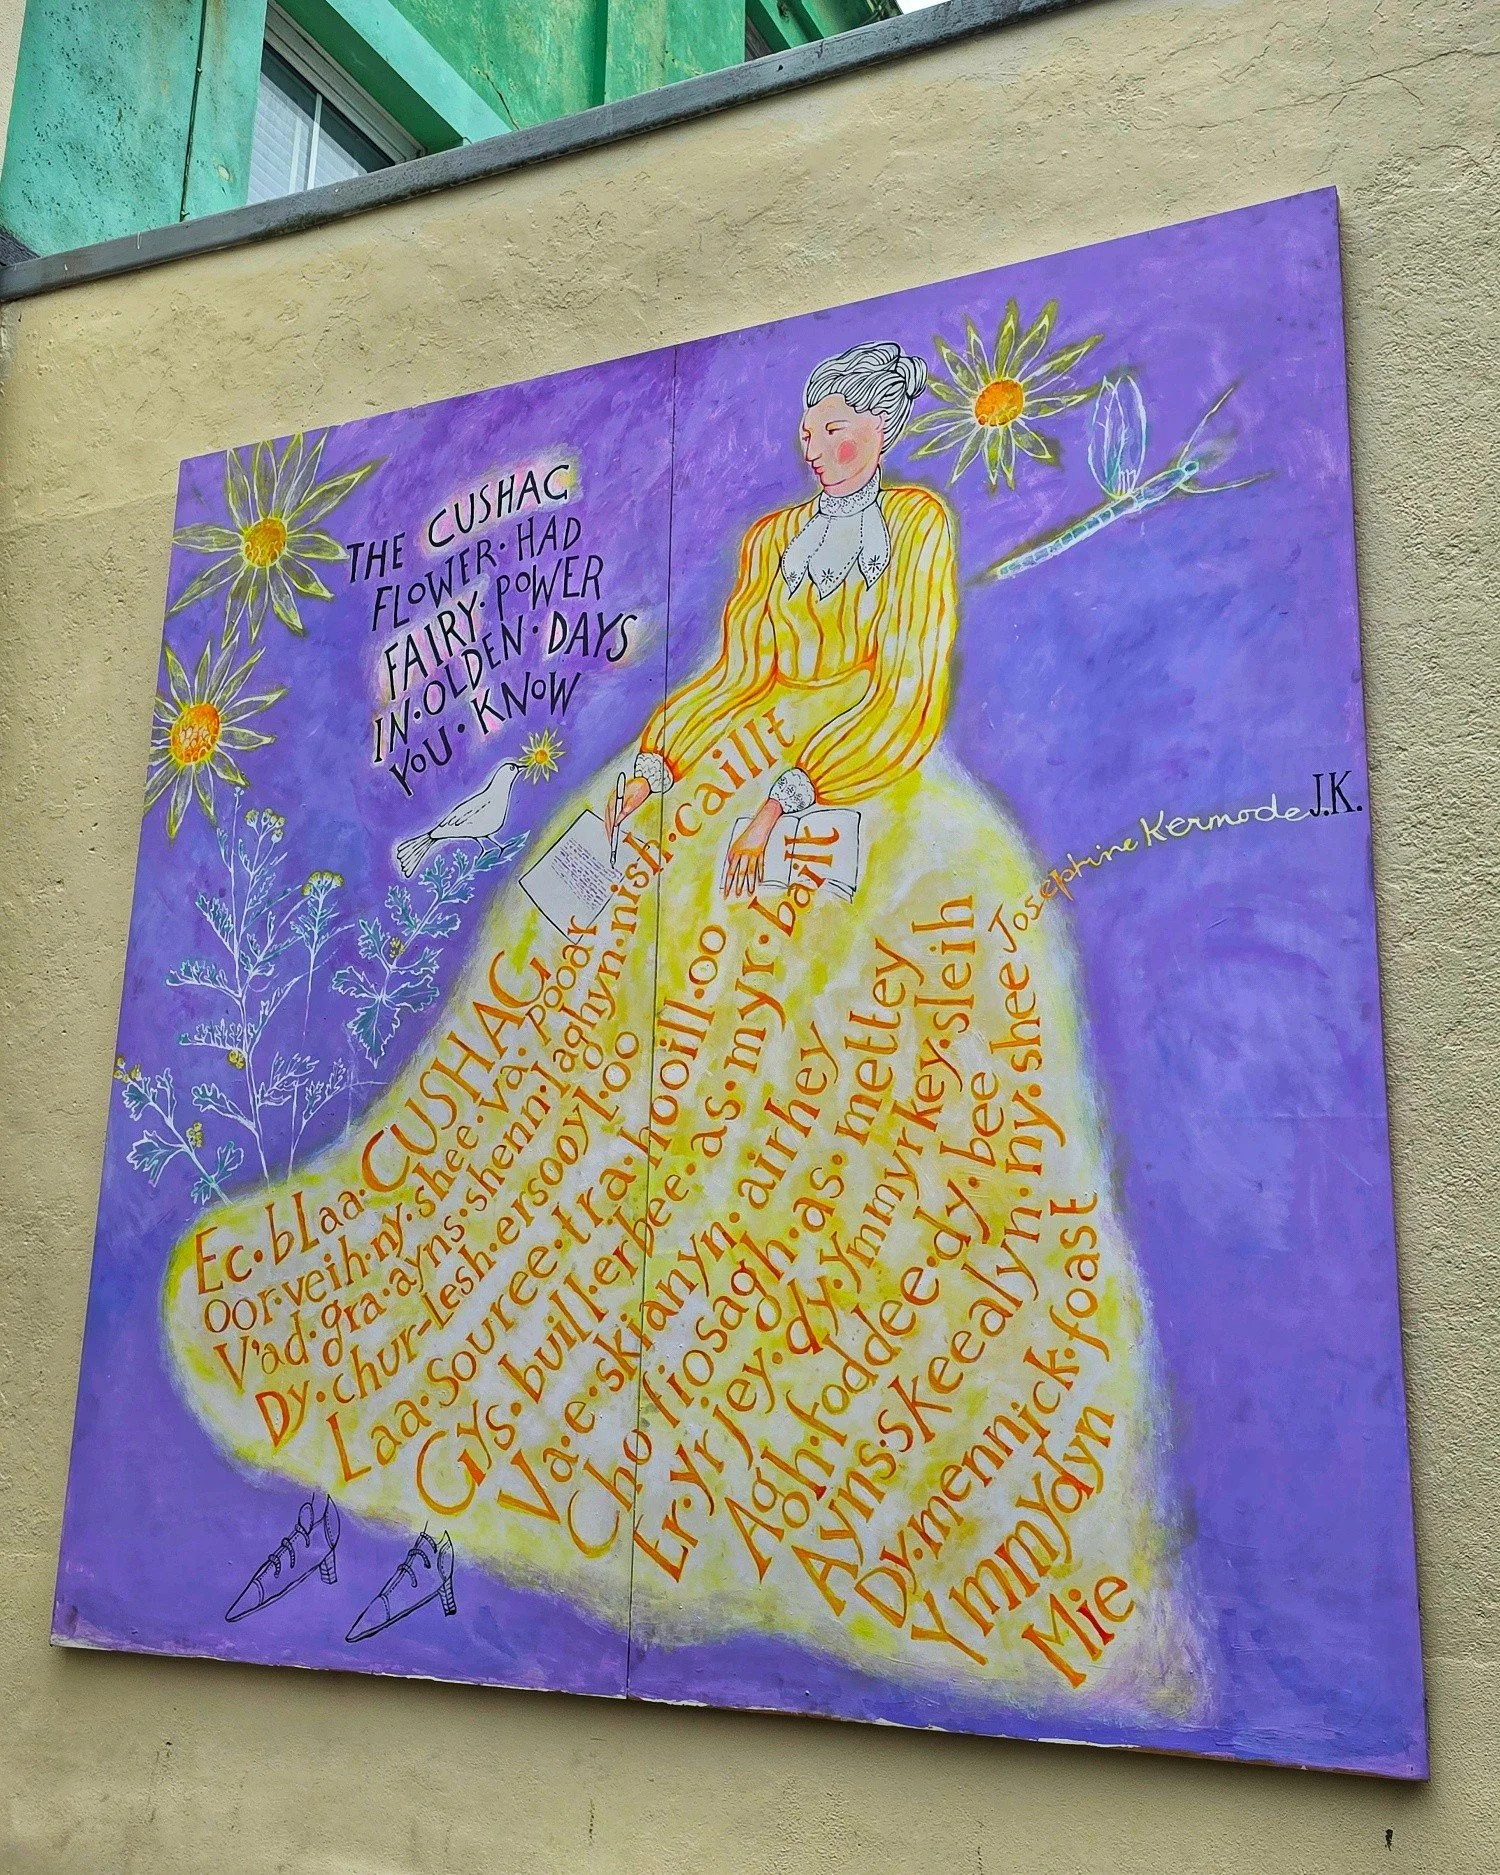 THE CUSHAG
FLOWER·HAD
FAIRY·POWER
IN·OLDEN·DAYS
YOU·KNOW
Ec·blaa·CUSHAG
oor·veih·ny·shee·va·pooar
V'ad·gra·ayns·shenn·laghyn·nish·caillt
Dy·chur-lesh·ersooyl·oo
Laa·souree·tra·hooill·oo
Gys·buill·erbee·as·myr·bailt
Va·e·skianyn·airhey
Cho fiosagh·as·mettey
Er·yrjey·dy·ymmyrkey·sleih
Agh·foddee·dy·bee
Ayns·skeealyn·ny·shee
Dy·mennick·foast
Ymmydyn
Mie
Josephine Kermode J.K.